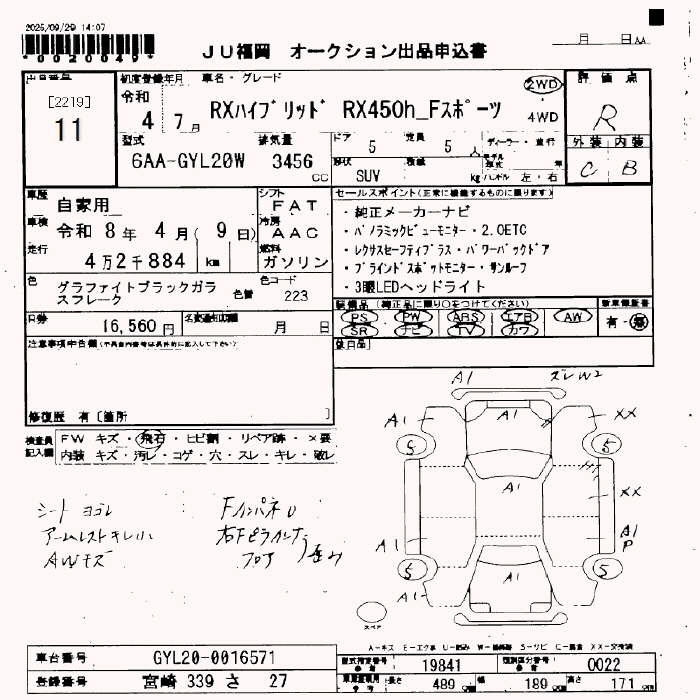 2025/09/29 14:07
*0020049*
JU福岡 オークション出品申込書
月 日
出品番号
[2219]
11
初度登録年月
令和
4 7月
車名・グレード
RXハイブリッド RX450h_Fスポーツ
2WD
4WD
評価点
R
外装 内装
C B
型式
6AA-GYL20W
排気量
3456 cc
ドア
5
定員
5人
形状
SUV
積載
kg
ディーラー・並行
モデル年式 年
ハンドル 左・右
車歴
自家用
車検
令和 8年 4月( 9日)
走行
4万2千884 km
シフト
FAT
冷房
AAC
燃料
ガソリン
セールスポイント(正常に機能するものに限ります)
・純正メーカーナビ
・パノラミックビューモニター・2.0ETC
・レクサスセーフティプラス・パワーバックドア
・ブラインドスポットモニター・サンルーフ
・3眼LEDヘッドライト
色
グラファイトブラックガラスフレーク
色替
色コード
223
R券
16,560円
名変適用期限
月 日
装備品 (純正品に限り○をつけてください)
PS PW ABS エアB AW
SR ナビ TV カワ
新車保証書
有・無
後日品
注意事項申告欄
修復歴 有 [箇所 ]
検査員記入欄
FW キズ・飛石・ヒビ割・リペア跡・×要
内装 キズ・汚レ・コゲ・穴・スレ・キレ・破レ
シート ヨゴレ
アームレストキレ小
AWキズ
Fインパネ
フロア
A1
ズレW2
A1
A1
XX
S
S
A1
XX
A1
A1
P
S
A1
S
A1
スペア
A-キズ E-エクボ U-凹み S-サビ C-腐食 XX-交換済
車台番号
GYL20-0016571
登録番号
宮崎 339 さ 27
型式指定番号
19841
類別区分番号
0022
長さ
489
幅
189
高さ
171